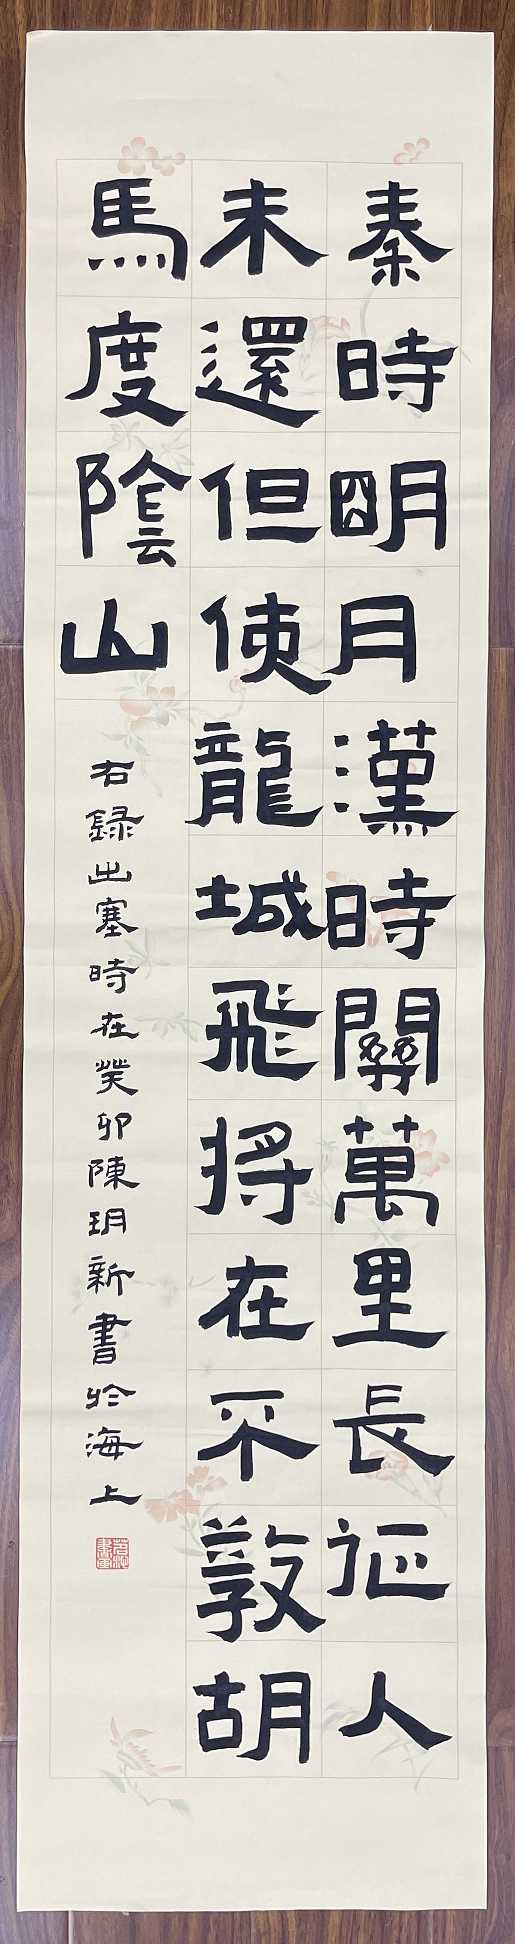 秦時明月漢時關萬里長征人
未還但使龍城飛將在不教胡
馬度陰山
右録出塞時在癸卯陳玥新書於海上